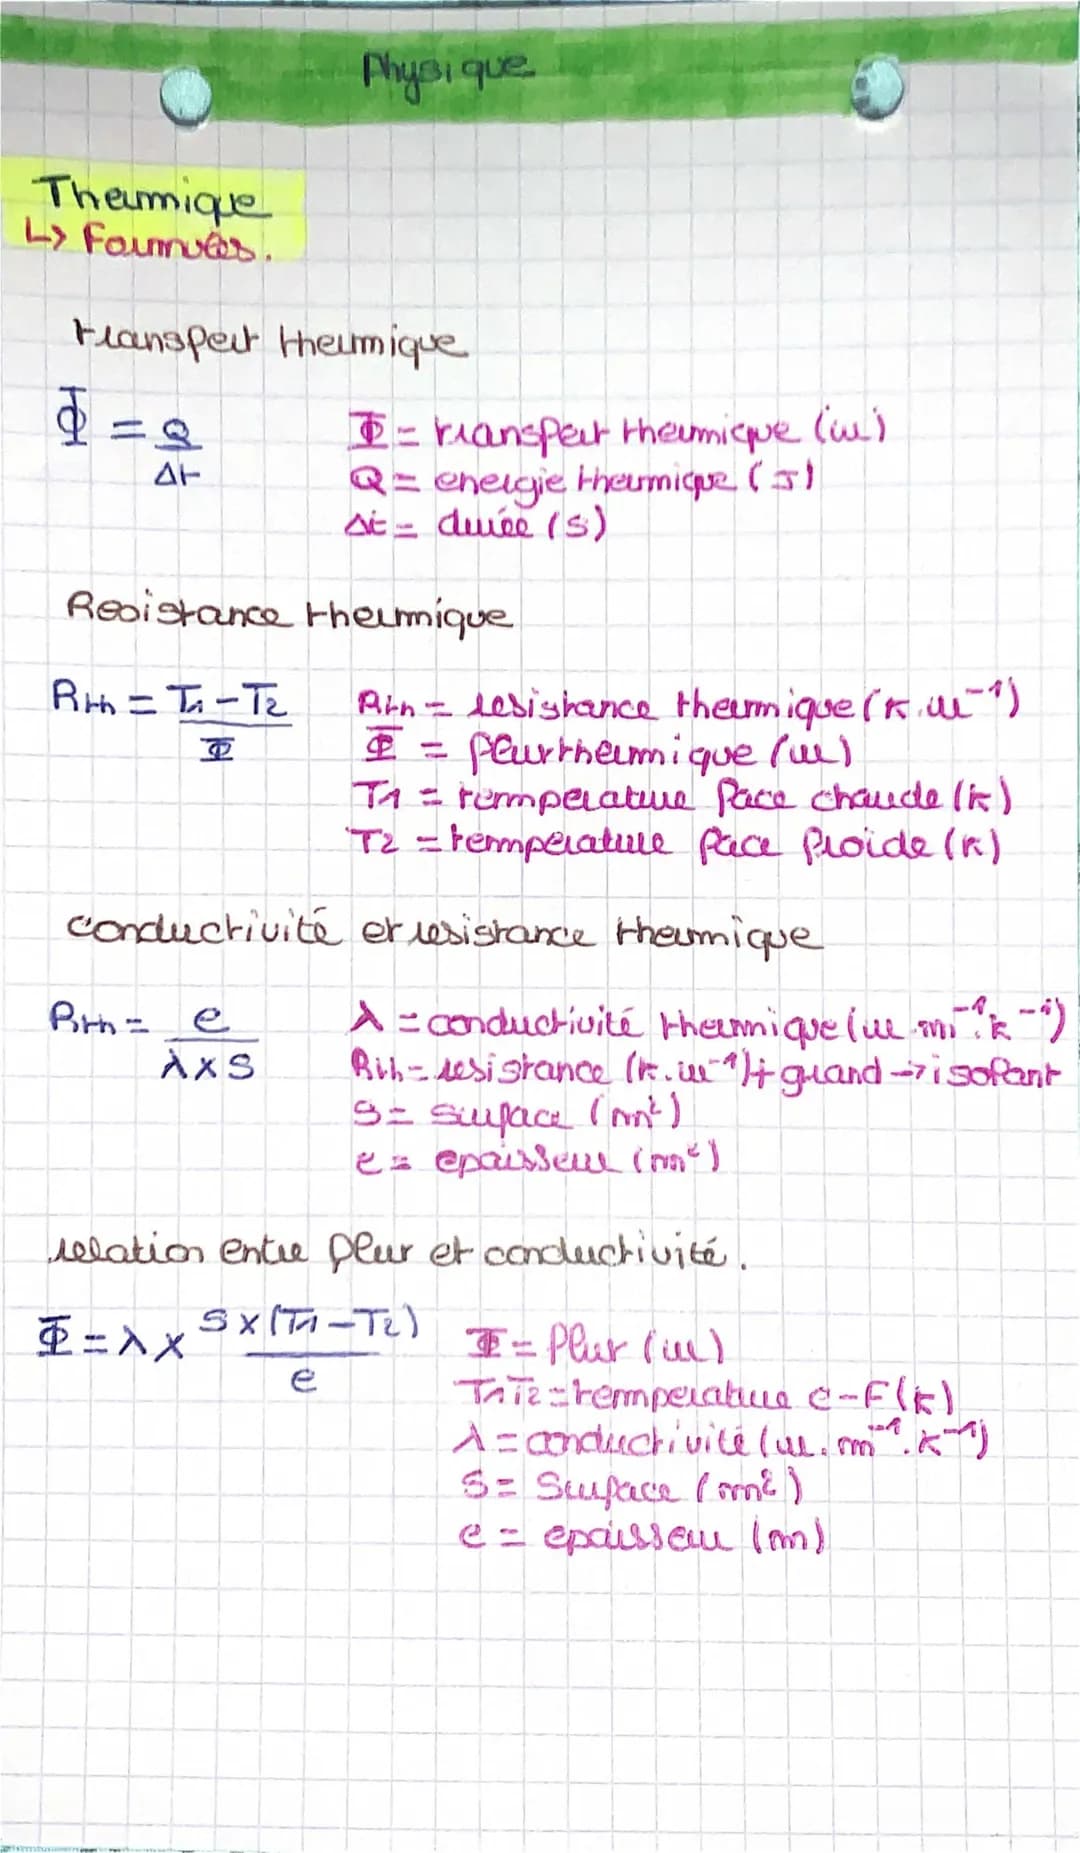 Physique
Thermique
↳ Formules.
transfert thermique
Φ = Q
Δt
Φ = transfert thermique (w)
Q = energie thermique (J)
Δt = durée (s)
Resistance thermique
Rth = T1 - T2
Φ
Rth = resistance thermique (K.w⁻¹)
Φ = flux thermique (w)
T1 = temperature face chaude (K)
T2 = temperature face froide (K)
conductivité et resistance thermique
Rth = e
λ x S
λ = conductivité thermique (w.m⁻¹.k⁻¹)
Rth = resistance (k.w⁻¹) + grand → isolant
S = surface (m²)
e = epaisseur (m²)
relation entre flux et conductivité.
Φ = λ x S x (T1 - T2)
e
Φ = flux (w)
T1 T2 = temperature c-F (k)
λ = conductivité (w.m⁻¹.k⁻¹)
S = Surface (m²)
e = epaisseur (m)